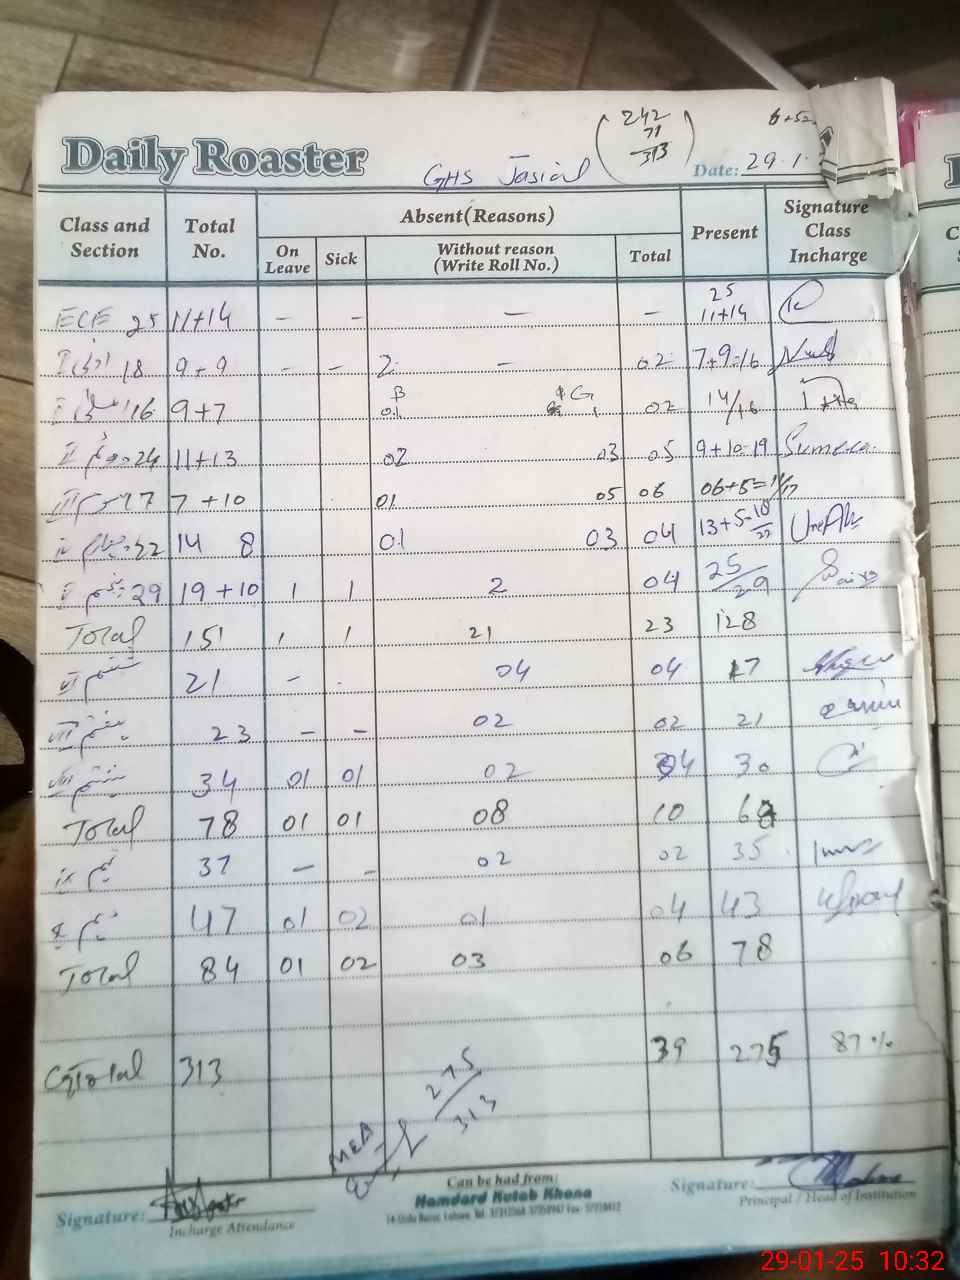 242
71
313
6+52
Daily Roaster
GHS Jasial
Date: 29.1.
Class and Section Total No. Absent(Reasons) Present Signature Class Incharge
On Leave Sick Without reason (Write Roll No.) Total
25
ECE 25 11+14 - - - - 11+14
I 18 9+9 - - 2 - 02 7+9=16
B G
I 16 9+7 01 1 02 14/16
II دوئم 24 11+13 02 03 05 9+10=19 Sumera
III سوم 17 7+10 01 05 06 06+5=11/17
چہارم 22 14 8 01 03 04 13+5=18/22
پنجم 29 19+10 1 1 2 04 25/29
Total 151 1 1 21 23 128
ششم VI 21 - 04 04 17
ہفتم VII 23 - - 02 02 21
ہشتم VIII 34 01 01 02 04 30
Total 78 01 01 08 10 68
نہم IX 37 - - 02 02 35
دہم X 47 01 02 01 04 43
Total 84 01 02 03 06 78
G Total 313 39 275 87%
MEA 275/313
Can be had from:
Hamdard Kutab Khana
Signature: Incharge Attendance
Signature: Principal / Head of Institution
29-01-25 10:32